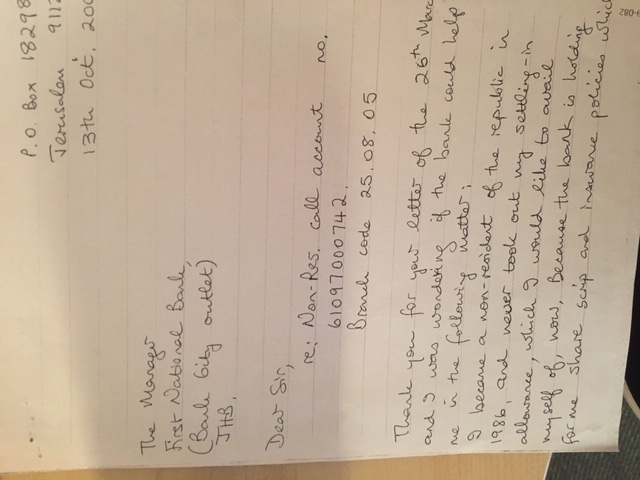 P.O. Box 18298
Jerusalem 9112
13th Oct. 200
The Manager
First National Bank,
(Bank City outlet)
JHB.
Dear Sir,
re: Non-Res. call account no.
61097000742.
Branch code 25.08.05
Thank you for your letter of the 26th Marc
and I was wondering if the bank could help
me in the following matter;
I became a non-resident of the republic in
1986, and never took out my settling-in
allowance, which I would like to avail
myself of, now. Because the bank is holding
for me share scrip and insurance policies whic
9-082